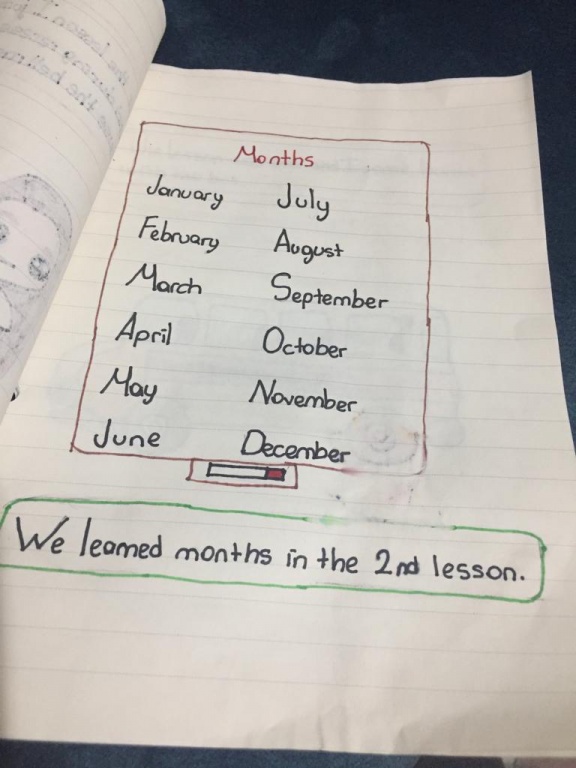 Months
January July
February August
March September
April October
May November
June December
We learned months in the 2nd lesson.